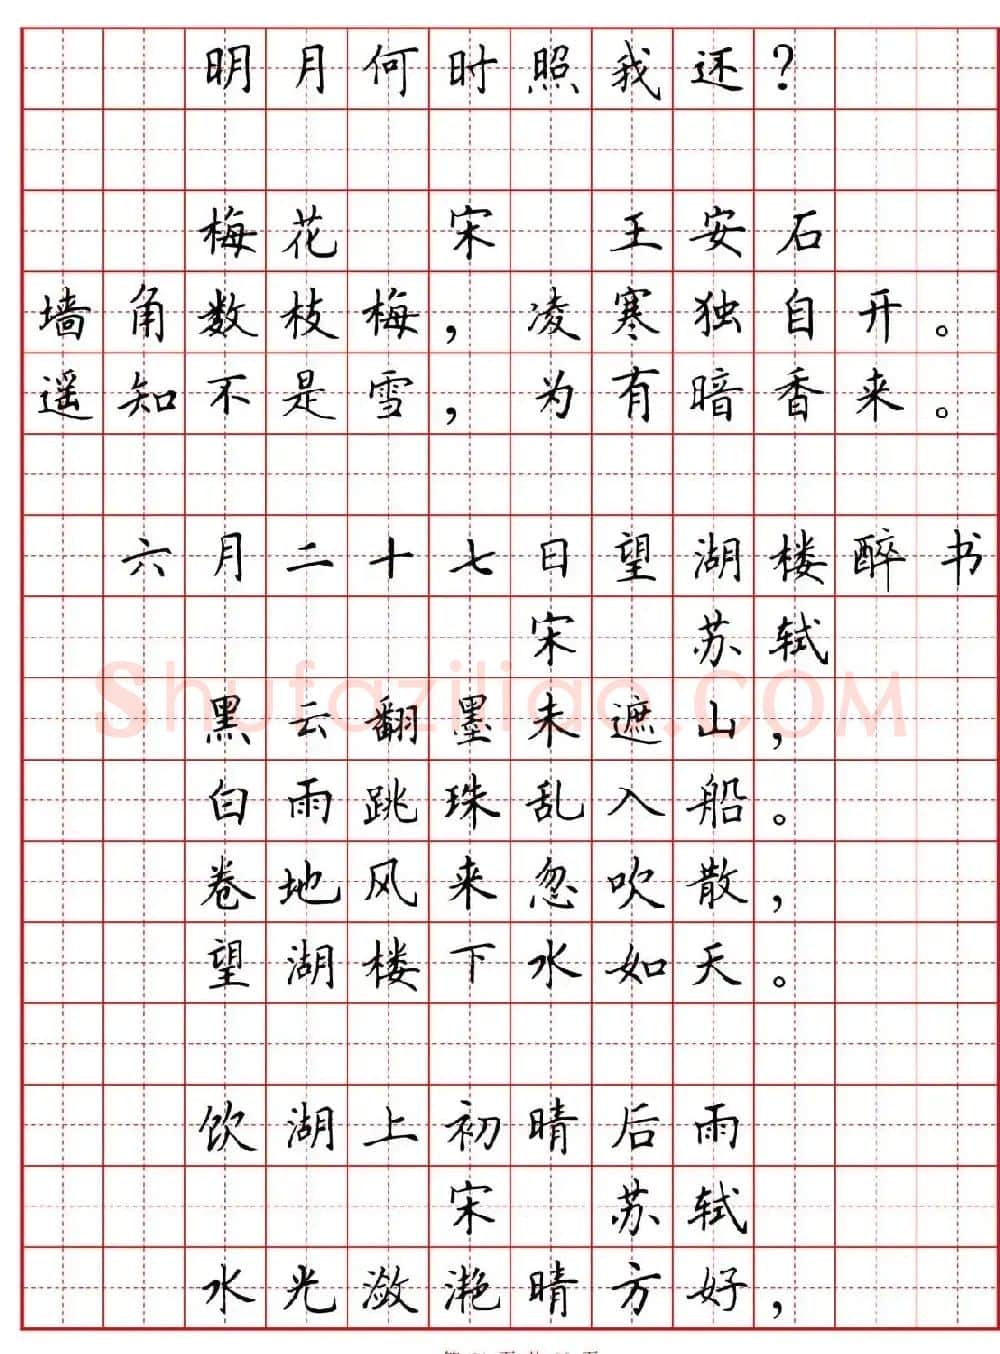 明月何时照我还？
梅花 宋 王安石
墙角数枝梅，凌寒独自开。
遥知不是雪，为有暗香来。
六月二十七日望湖楼醉书
宋 苏轼
Shufaziliao.COM
黑云翻墨未遮山，
白雨跳珠乱入船。
卷地风来忽吹散，
望湖楼下水如天。
饮湖上初晴后雨
宋 苏轼
水光潋滟晴方好，